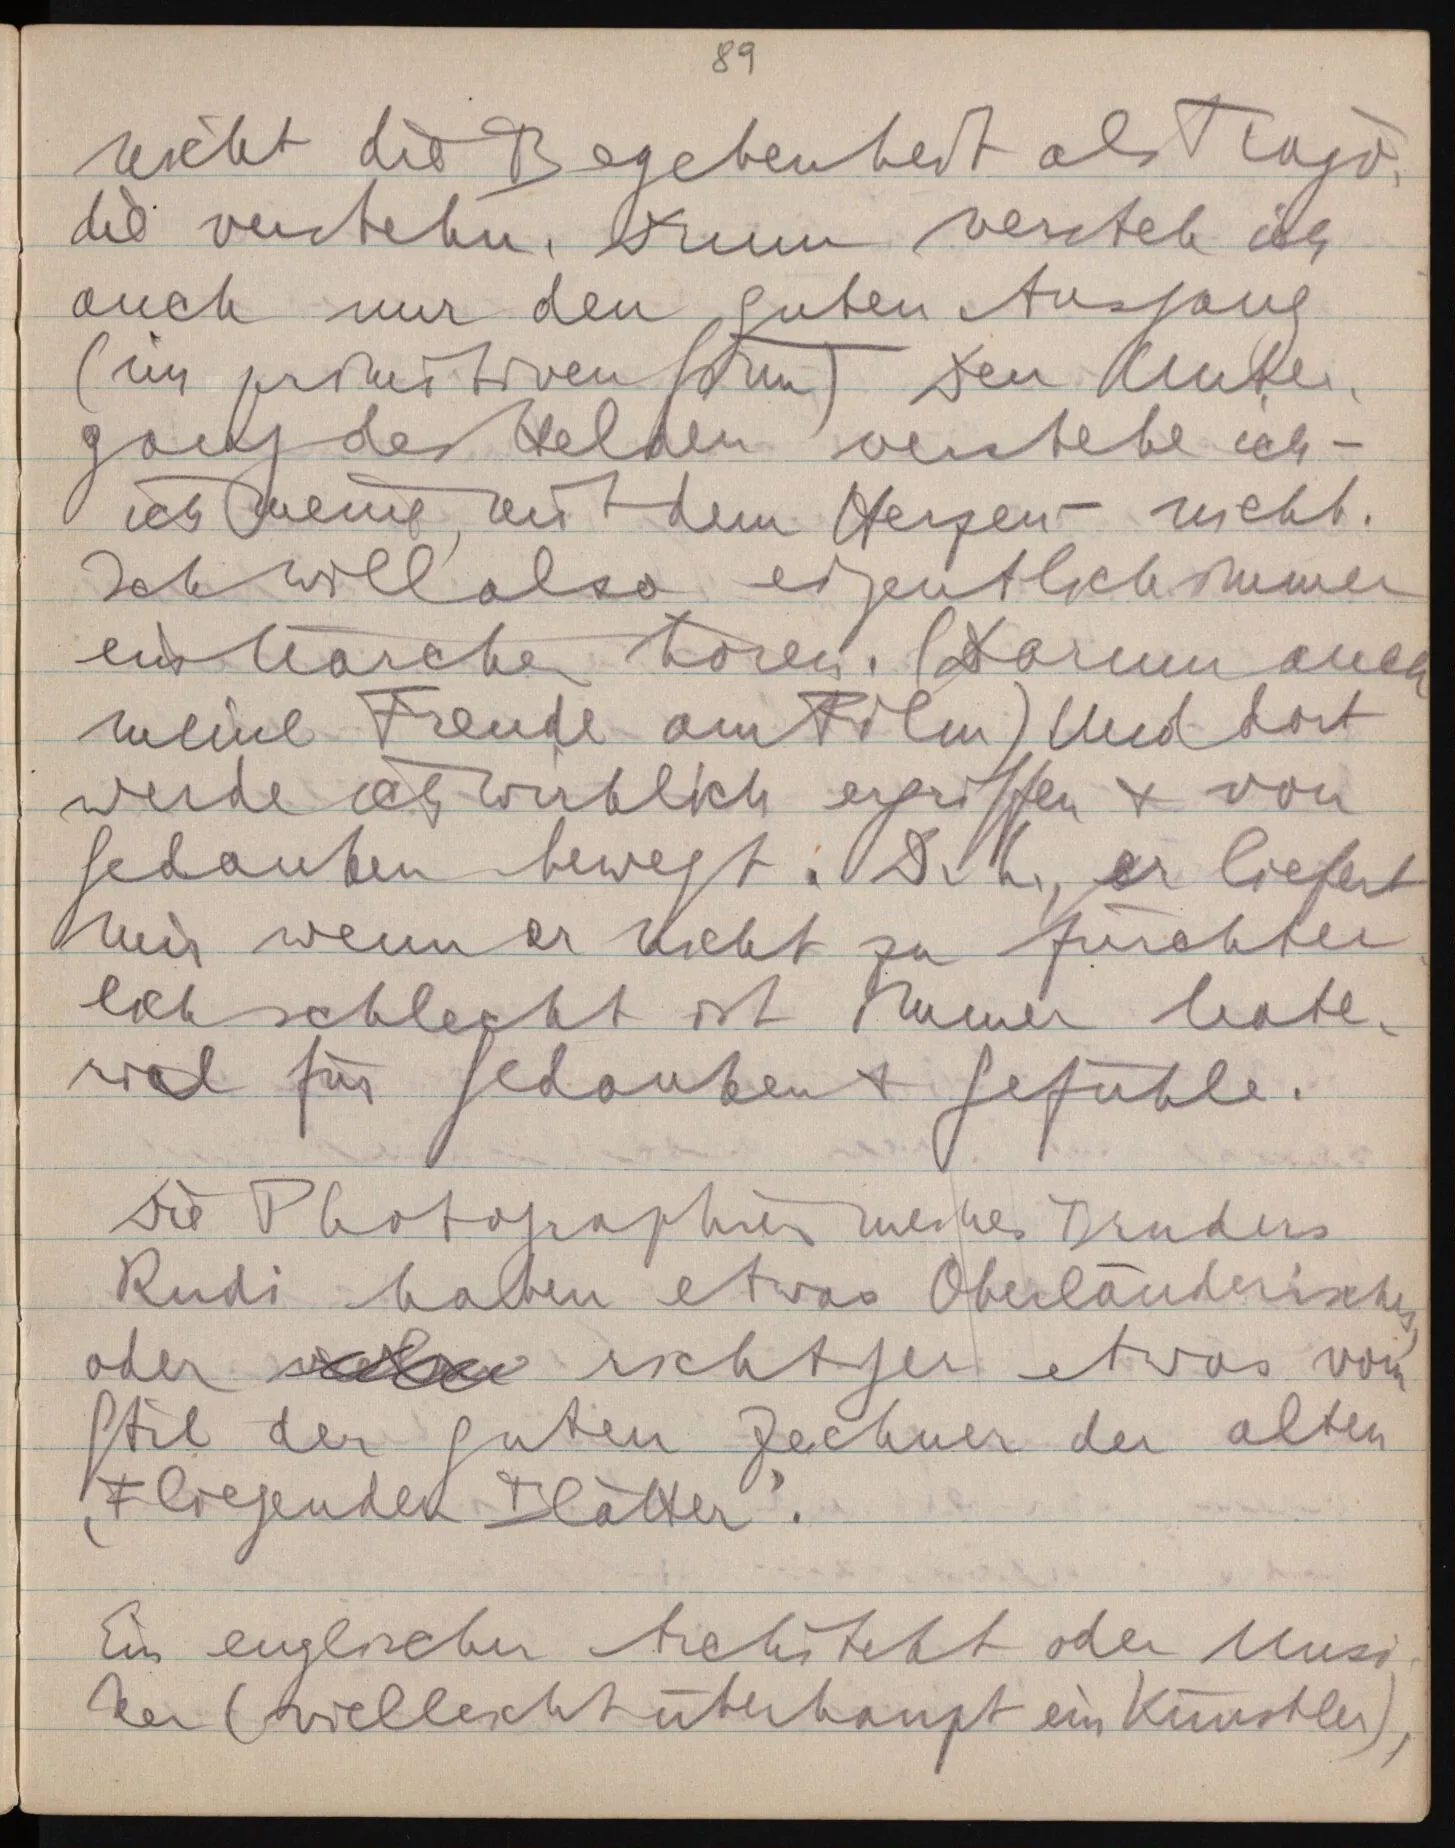 89
nicht die Begebenheit als Tragö-
die verstehn. Drum versteh ich
auch nur den guten Ausgang
(im primitiven Sinn) Den Unter-
gang des Helden verstehe ich –
ich meine, mit dem Herzen – nicht.
Ich will also eigentlich immer
ein Märchen hören. (Darum auch
meine Freude am Film) Und dort
werde ich wirklich ergriffen & von
Gedanken bewegt. D.h., er liefert
mir wenn er nicht zu fürchter-
lich schlecht ist immer Mate-
rial für Gedanken & Gefühle.
Die Photographien meines Bruders
Rudi haben etwas Oberländerisches,
oder richtger etwas vom
Stil der guten Zeichner der alten
„Fliegenden Blätter".
Ein englischer Architekt oder Musi-
ker (vielleicht überhaupt ein Künstler),